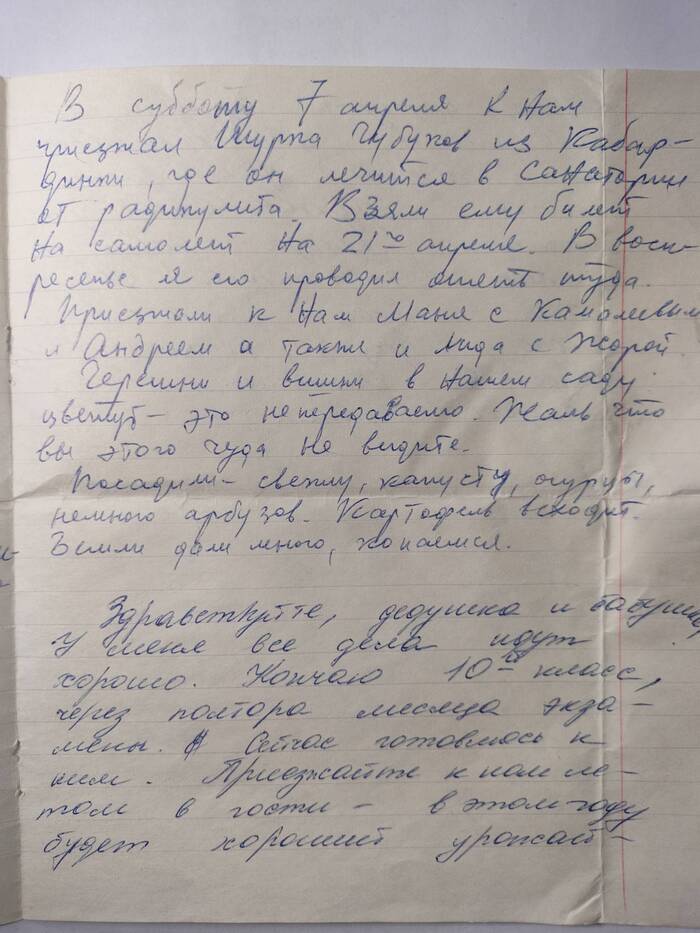 В субботу 7 апреля к нам
приезжал Шурка Чубуков из Кабар-
динки, где он лечится в санатории
от радикулита. Взяли ему билет
на самолет на 21го апреля. В воск-
ресенье я его проводил опять туда.
Приезжали к нам Маня с Камолевым
и Андреем а также и Лида с Жорой
Черешни и вишни в нашем саду
цветут – это непередаваемо. Жаль что
вы этого чуда не видите.
Посадили – свеклу, капусту, огурцы,
немного арбузов. Картофель всходит.
Земли дали много, копаемся.
Здравствуйте, дедушка и бабушка
У меня все дела идут
хорошо. Кончаю 10й класс,
через полтора месяца экза-
мены. Сейчас готовлюсь к
ним. Приезжайте к нам ле-
том в гости – в этом году
будет хороший урожай –